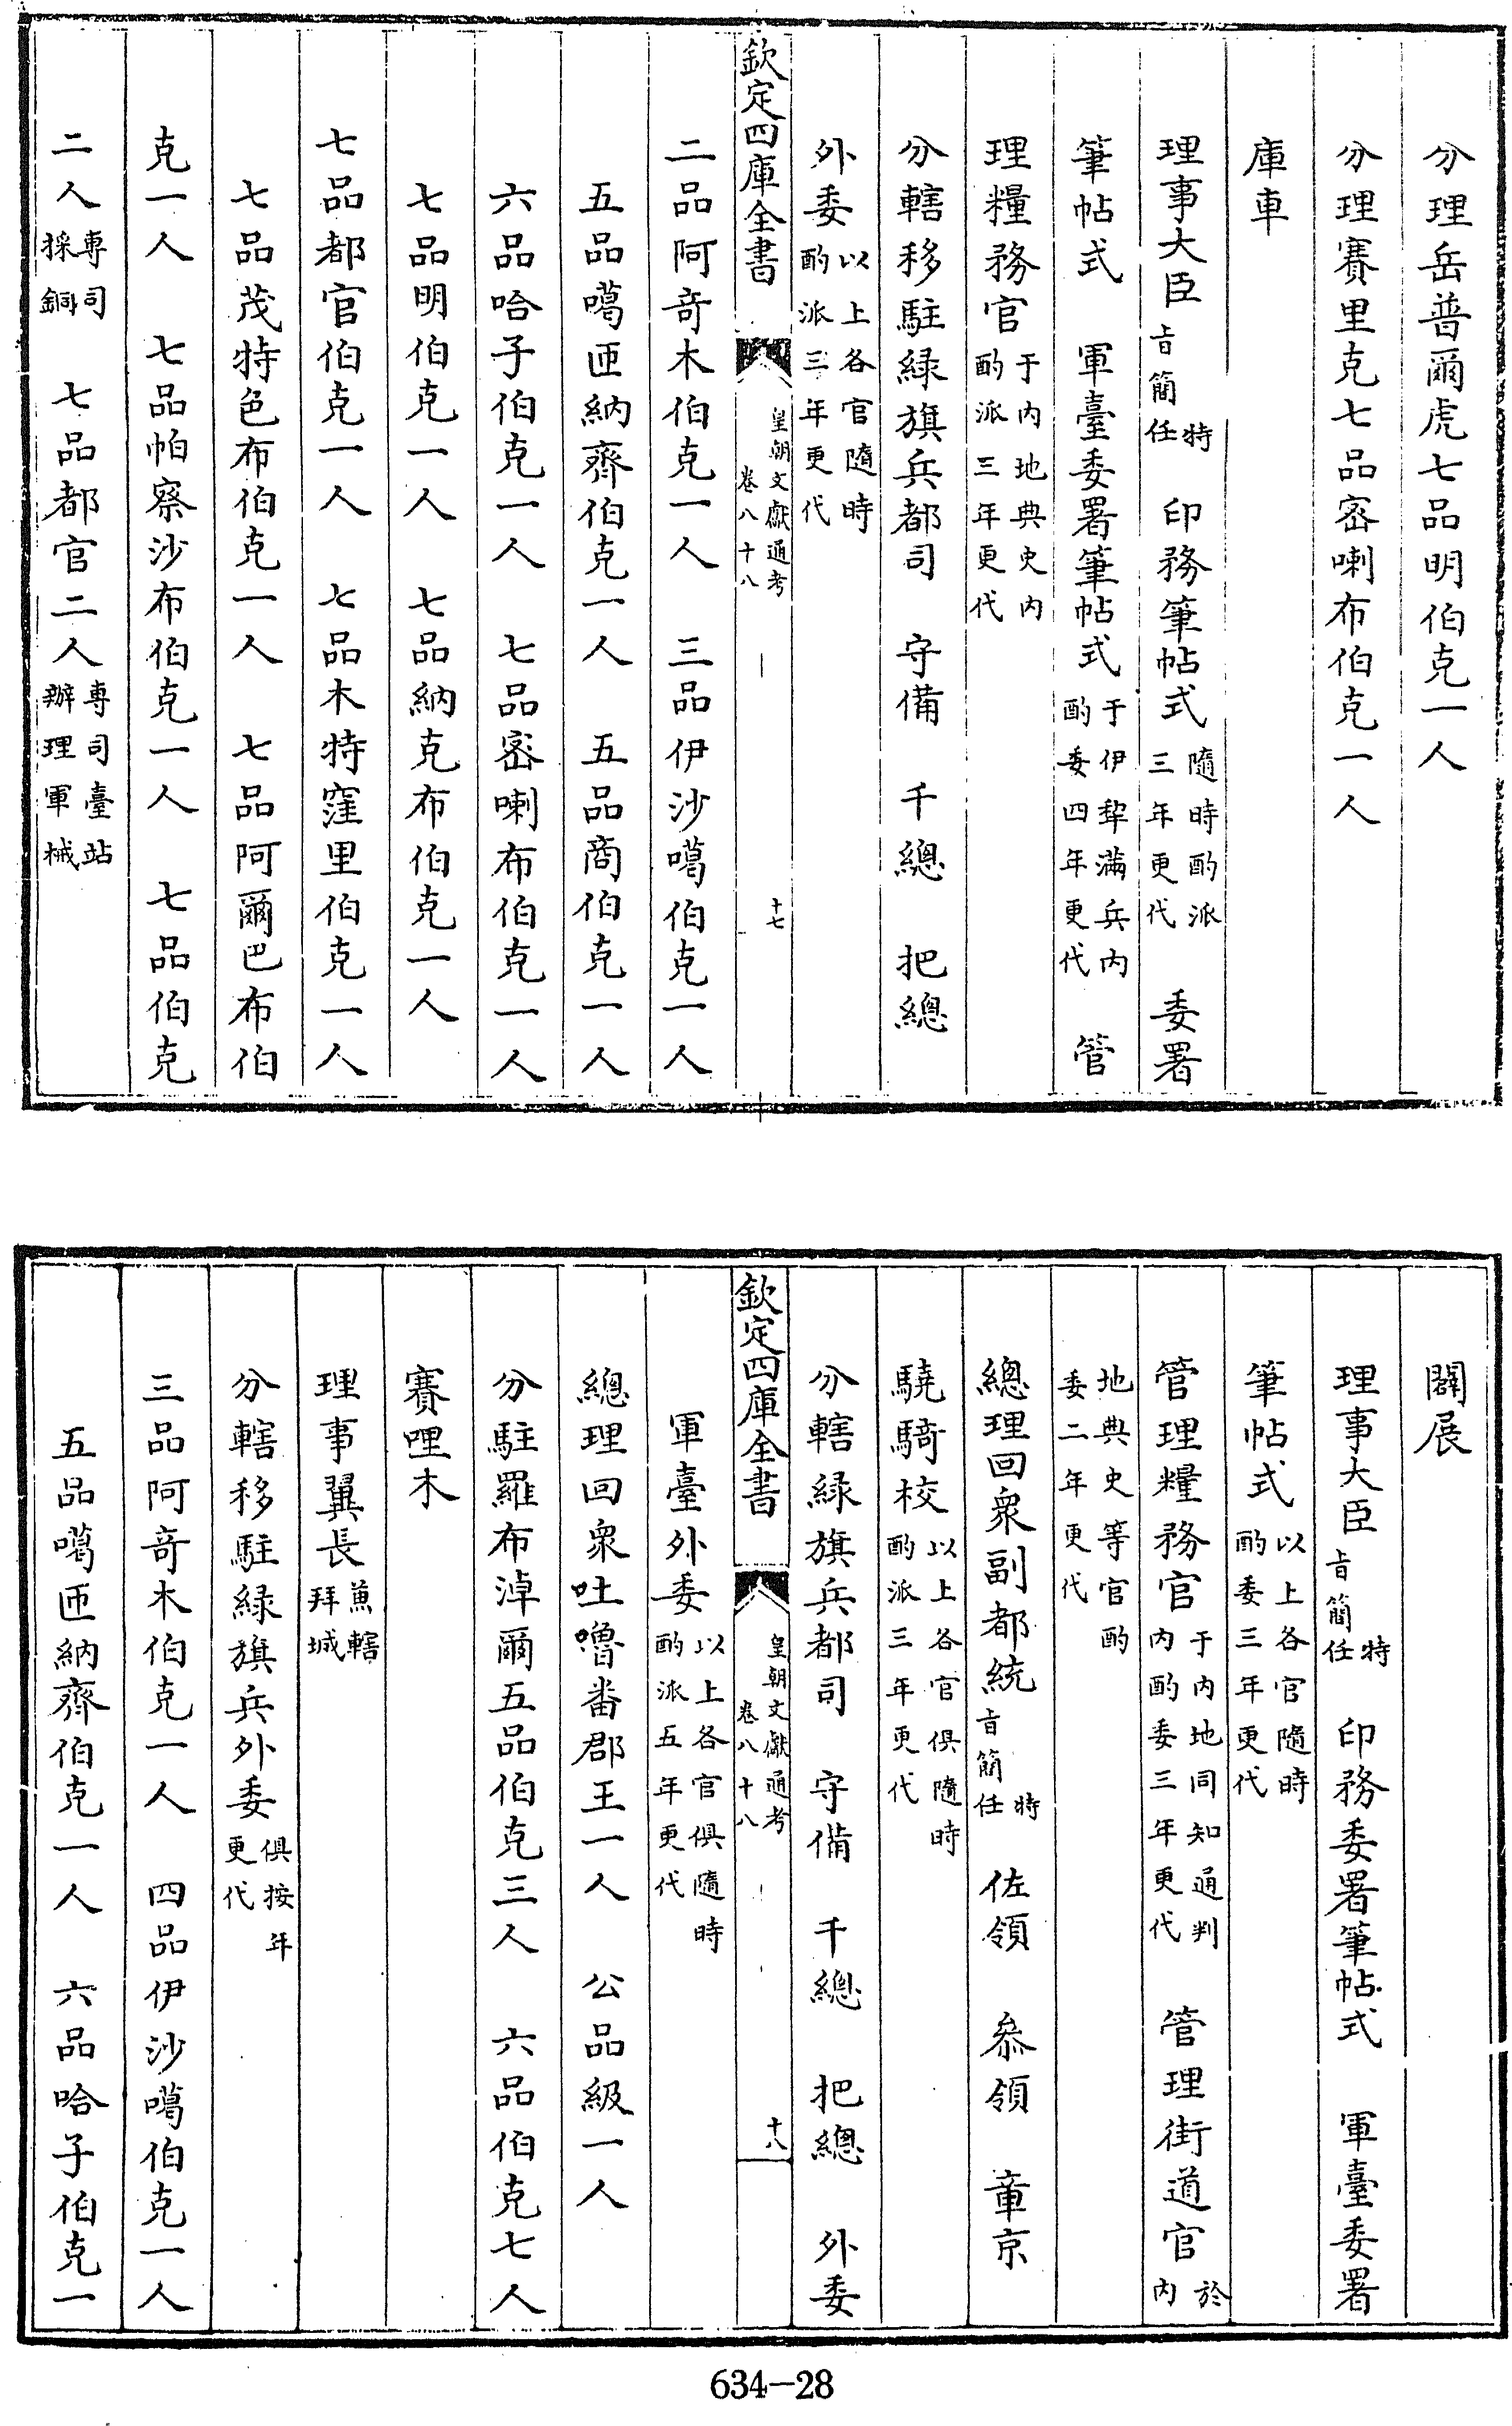 分理岳普爾虎七品明伯克一人
分理賽里克七品宻喇布伯克一人
庫車
理事大臣特旨簡任 印務筆帖式隨時酌派三年更代 委署
筆帖式 軍臺委署筆帖式于伊犂滿兵内酌委四年更代 管
理糧務官于内地典史内酌派三年更代
分轄移駐緑旗兵都司 守備 千總 把總
外委以上各官隨時酌派三年更代
欽定四庫全書 皇朝文獻通考卷八十八 十七
二品阿奇木伯克一人 三品伊沙噶伯克一人
五品噶匝納齊伯克一人 五品商伯克一人
六品哈子伯克一人 七品宻喇布伯克一人
七品明伯克一人 七品納克布伯克一人
七品都官伯克一人 七品木特窪里伯克一人
七品茂特色布伯克一人 七品阿爾巴布伯
克一人 七品帕察沙布伯克一人 七品伯克
二人専司採銅 七品都官二人専司臺站辦理軍械
闢展
理事大臣特旨簡任 印務委署筆帖式 軍臺委署
筆帖式以上各官隨時酌委三年更代
管理糧務官于内地同知通判内酌委三年更代 管理街道官於内
地典史等官酌委二年更代
總理回衆副都統特旨簡任 佐領 叅領 章京
驍騎校以上各官俱隨時酌派三年更代
分轄緑旗兵都司 守備 千總 把總 外委
欽定四庫全書 皇朝文獻通考卷八十八 十八
軍臺外委以上各官俱隨時酌派五年更代
總理回衆吐嚕番郡王一人 公品級一人
分駐羅布淖爾五品伯克三人 六品伯克七人
賽哩木
理事翼長兼轄拜城
分轄移駐緑旗兵外委俱按年更代
三品阿奇木伯克一人 四品伊沙噶伯克一人
五品噶匝納齊伯克一人 六品哈子伯克一
634—28